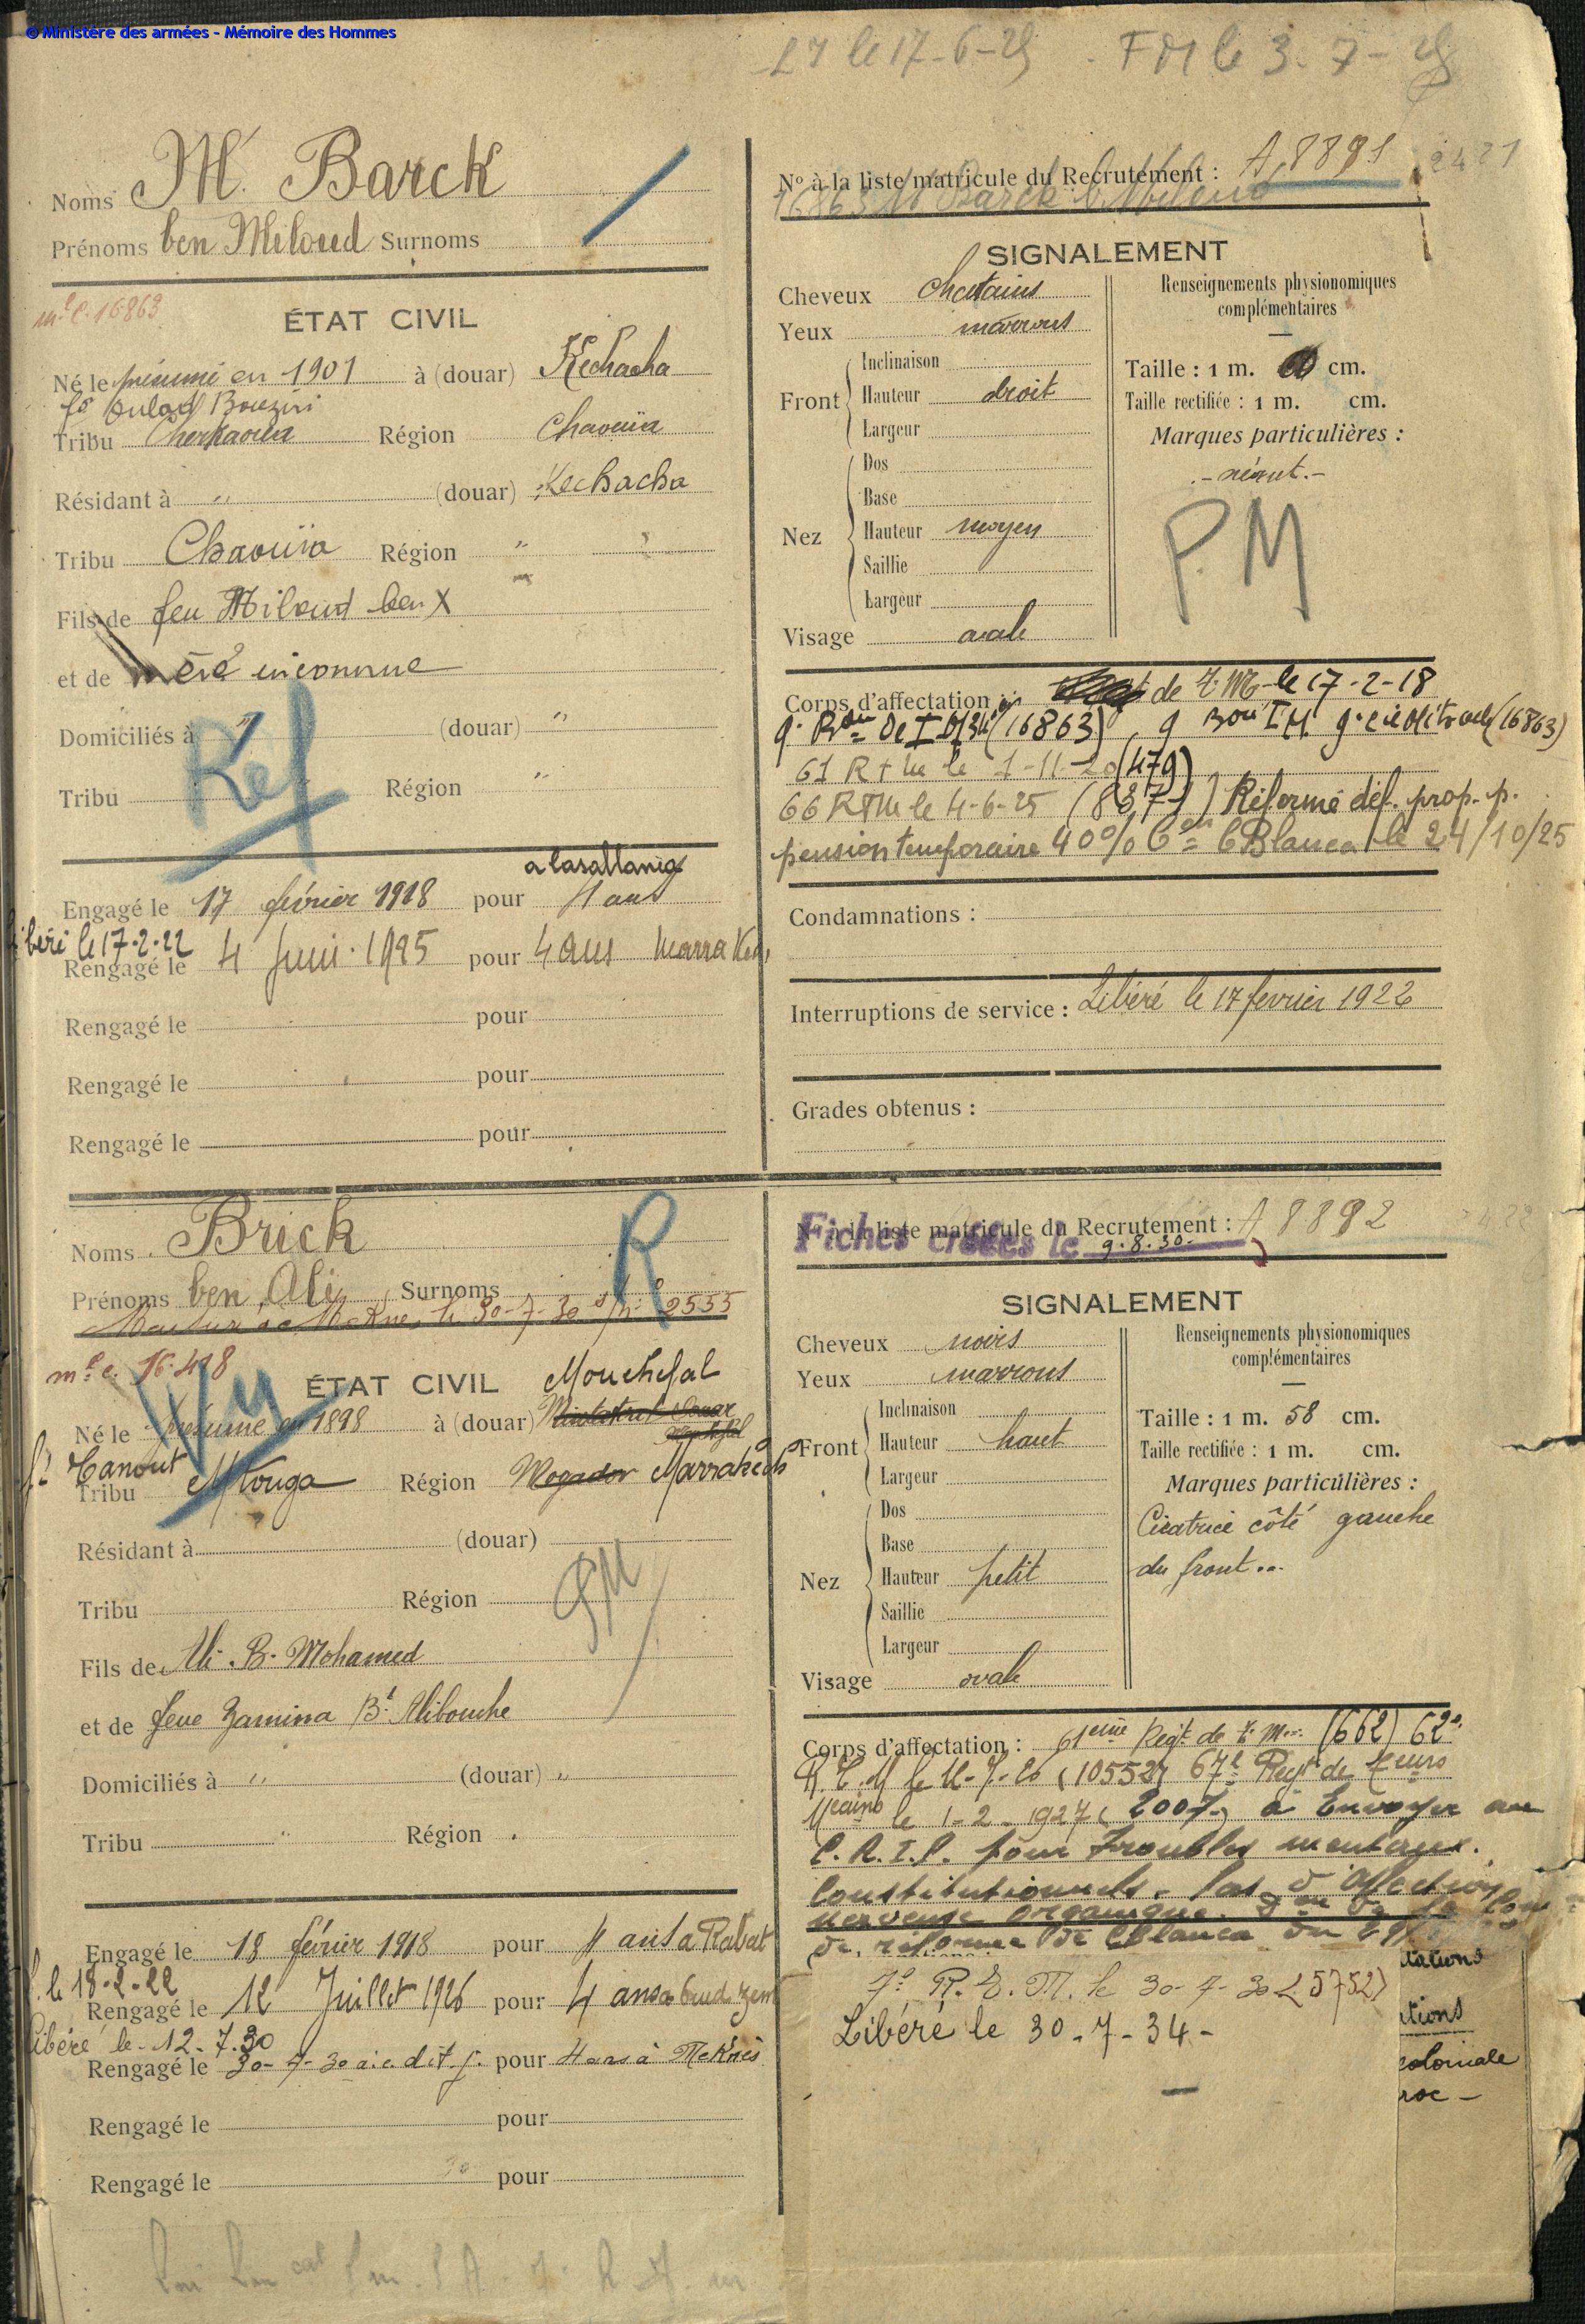 © Ministère des armées - Mémoire des Hommes
L M le 17-6-25 . F M le 3-7-25
Noms M' Barck
Prénoms ben Miloud Surnoms
mle C. 16863
ÉTAT CIVIL
Né le présumé en 1901 à (douar) Kechacha
fon Oulad Bouziri
Tribu Cherkaoua Région Chaouïa
Résidant à " (douar) Kechacha
Tribu Chaouïa Région "
Fils de feu Miloud ben X
et de mère inconnue
Domiciliés à " (douar) "
Tribu " Région "
Ref
a Casablanca
Engagé le 17 février 1918 pour 4 ans
libéré le 17-2-22
Rengagé le 4 Juin 1925 pour 4 ans Marrakech
Rengagé le pour
Rengagé le pour
Rengagé le pour
No à la liste matricule du Recrutement : A 8891 2421
16863 M' Barck b. Miloud
SIGNALEMENT
Cheveux chatains
Yeux marrons
Front Inclinaison
Hauteur droit
Largeur
Nez Dos
Base
Hauteur moyen
Saillie
Largeur
Visage ovale
Renseignements physionomiques
complémentaires
Taille : 1 m. 60 cm.
Taille rectifiée : 1 m. cm.
Marques particulières :
- néant. -
P.M
Corps d'affectation : de T. M. le 17-2-18
(16863), 9 Bon T M 9e Cie (16863)
61 R t M le 1-11-20 (479)
66 RTM le 4-6-25 (8371) Réformé déf. prop. p.
pension temporaire 40% Con CBlanca le 24/10/25
Condamnations :
Interruptions de service : Libéré le 17 février 1922
Grades obtenus :
Noms Brick
Prénoms ben Ali Surnoms
R
Meknès le 30-7-30 s/no 2555
mle C. 16.418
ÉTAT CIVIL Mouchgal
Né le présumé en 1898 à (douar)
fon Tanout
Tribu Mtouga Région Mogador Marrakech
Résidant à (douar)
Tribu Région
PM
Fils de Ali B. Mohamed
et de feue Zamina Bt Alibouche
Domiciliés à " (douar) "
Tribu " Région
Engagé le 18 février 1918 pour 4 ans a Rabat
L. le 18-2-22
Rengagé le 12 Juillet 1926 pour 4 ans a Oued Zem
Libéré le 12-7-30
Rengagé le 30-7-30 a.c. dit j. pour 4 ans à Meknès
Rengagé le pour
Rengagé le pour
No à la liste matricule du Recrutement : A 8892
Fiches créées le 9.8.30.
SIGNALEMENT
Cheveux noirs
Yeux marrons
Front Inclinaison
Hauteur haut
Largeur
Nez Dos
Base
Hauteur petit
Saillie
Largeur
Visage ovale
Renseignements physionomiques
complémentaires
Taille : 1 m. 58 cm.
Taille rectifiée : 1 m. cm.
Marques particulières :
Cicatrice côté gauche
du front...
Corps d'affectation : 61eme Régt de t. M... (662) 62e
R.T.M le 12-7-26 (10552) 67e Régt de Teurs
Mcains le 1-2-1927 (2007) à Envoyer au
C.R.I.P. pour Troubles mentaux.
Constitutionnels. Pas d'affection
nerveuse organique. Don de la Com
de réforme de CBlanca du
7e R.T.M. le 30-7-30 (5752)
Libéré le 30-7-34-
tations
tions
coloniale
roc -